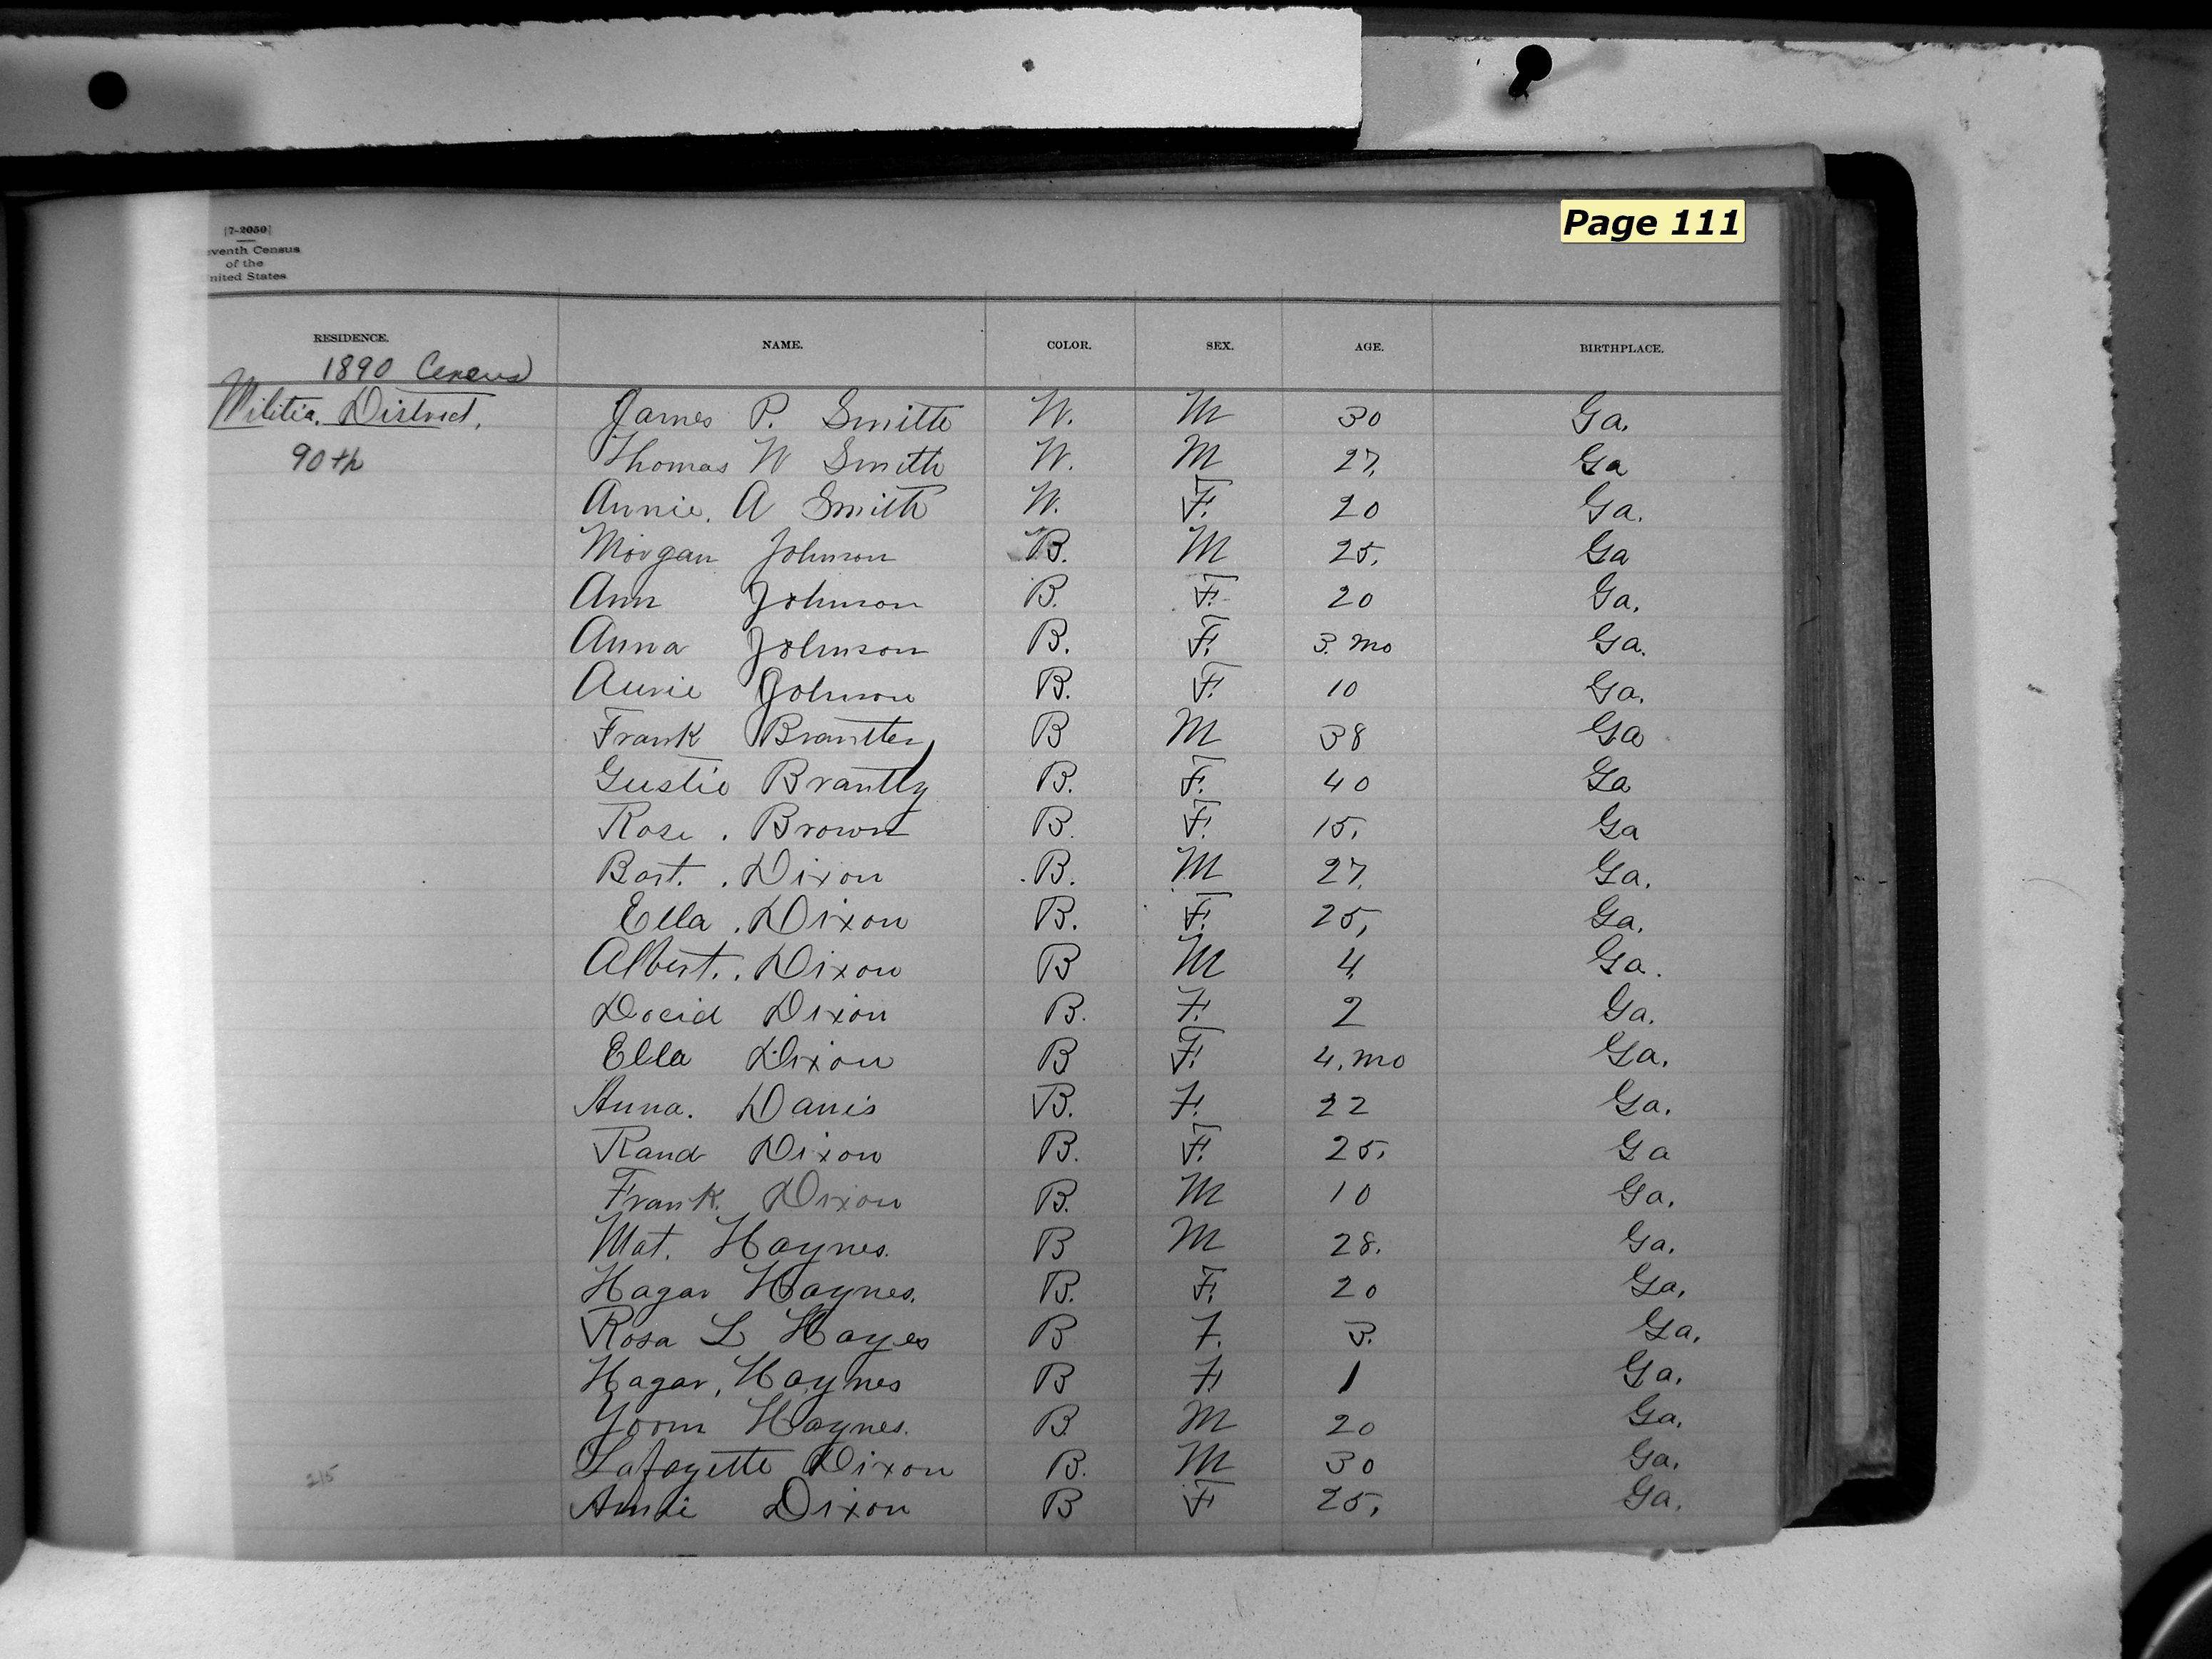 Page 111
[7-2050]
eventh Census
of the
nited States
RESIDENCE. NAME. COLOR. SEX. AGE. BIRTHPLACE.
1890 Census
Militia. District. James P. Smith W. M 30 Ga.
90th Thomas W Smith W. M 27. Ga
Annie. A Smith W. F. 20 Ga.
Morgan Johnson B. M 25. Ga
Ann Johnson B. F. 20 Ga.
Anna Johnson B. F. 3. mo Ga.
Annie Johnson B. F. 10 Ga.
Frank Brantley B M 38 Ga
Gustie Brantly B. F. 40 Ga
Rose . Brown B. F. 15. Ga
Bart. . Dixon B. M 27. Ga.
Ella . Dixon B. F. 25, Ga.
Albert. . Dixon B M 4 Ga.
Docid Dixon B. F. 2 Ga.
Ella Dixon B F. 4. mo Ga.
Anna. Davis B. F. 22 Ga.
Rand Dixon B. F. 25. Ga
Frank. Dixon B. M 10 Ga.
Mat. Haynes. B M 28. Ga.
Hagar Haynes. B. F. 20 Ga.
Rosa L Hayes B F. 3. Ga.
Hagar, Haynes B F. 1 Ga.
Haynes. B M 20 Ga.
Lafayette Dixon B. M 30 Ga.
215 Annie Dixon B F 25, Ga.